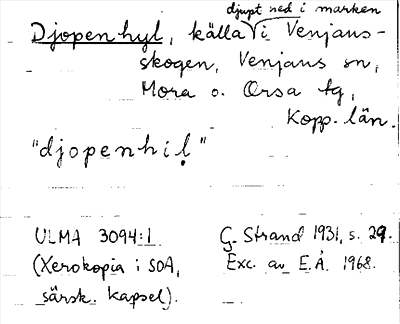 djupt ned i marken
Djopenhyl, källa i Venjans-
skogen, Venjans sn,
Mora o. Orsa tg,
Kopp. län.
"djopenhiḷ"
ULMA 3094:1
(Xerokopia i SOA,
särsk. kapsel).
G. Strand 1931, s. 29.
Exc. av E.Å. 1968.